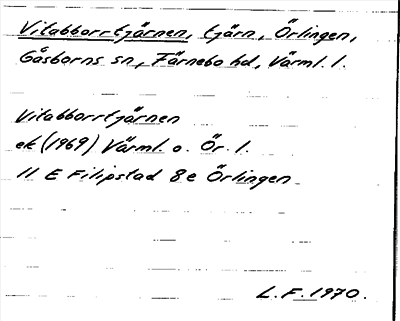 Vitabborrtjärnen, tjärn, Örlingen,
Gåsborns sn, Färnebo hd, Värml. l.
Vitabborrtjärnen
ek (1969) Värml. o. Ör. l.
11 E Filipstad 8e Örlingen
L.F. 1970.